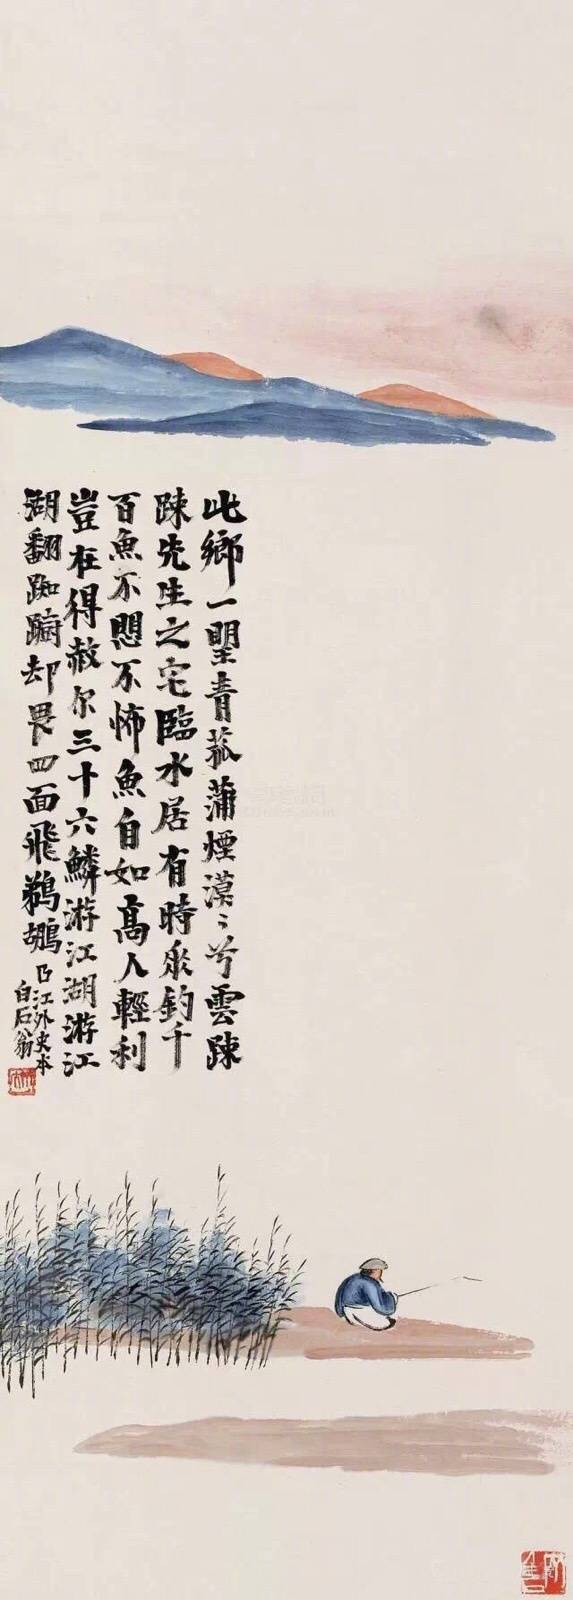 此鄉一望青菰蒲煙漠〻兮雲疎
疎先生之宅臨水居有時垂釣千
百魚不悶不怖魚自如高人輕利
豈在得赦尔三十六鱗游江湖游江
湖翻踟躕却畏四面飛鵜鶘
江外史本
白石翁